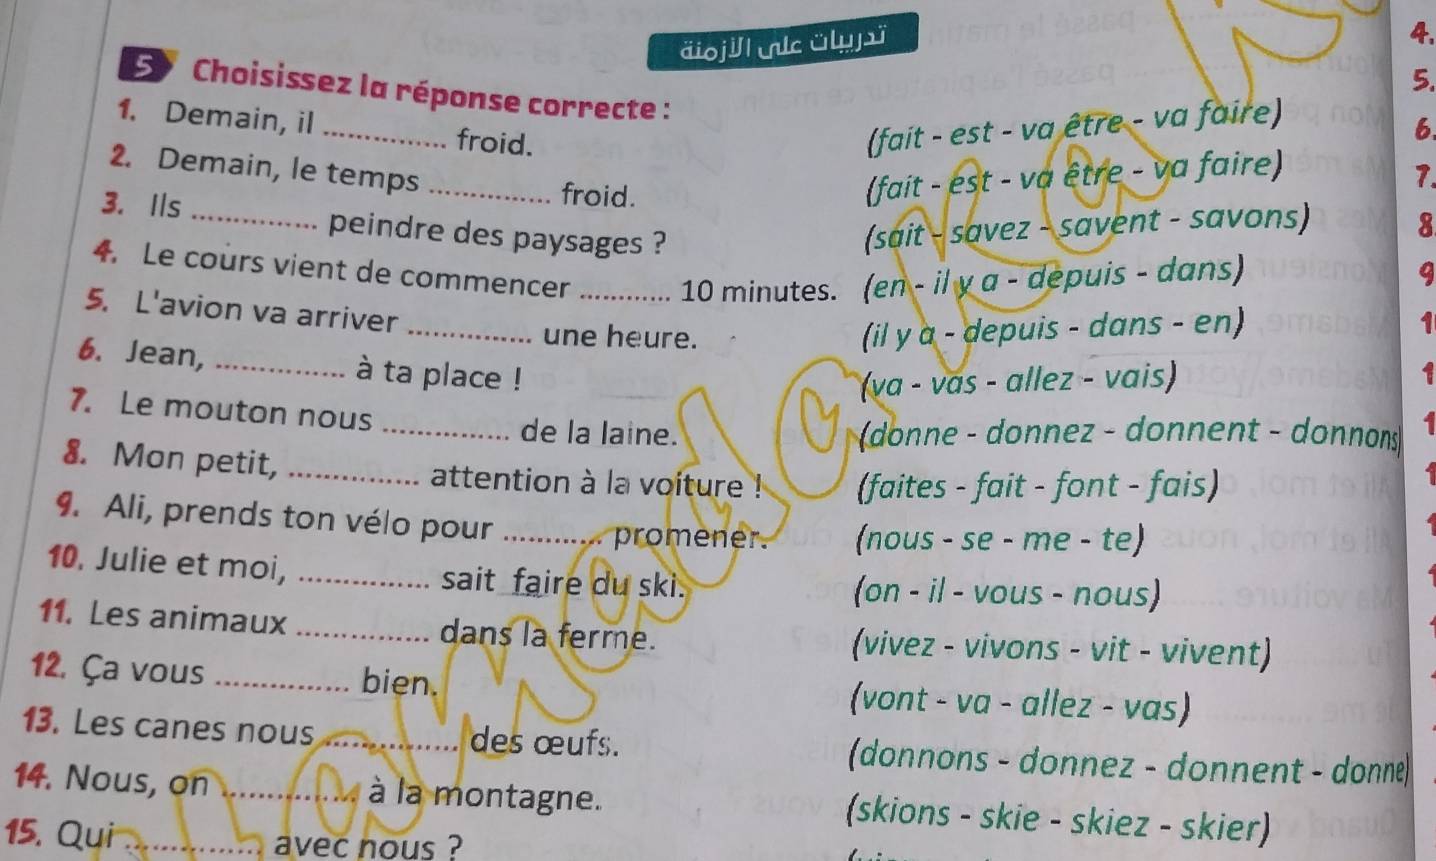 تدريبات على الأزمنة
5 Choisissez la réponse correcte :
1. Demain, il ............ froid. (fait - est - va être - va faire)
2. Demain, le temps ............ froid. (fait - est - va être - va faire)
3. Ils ............ peindre des paysages ? (sait - savez - savent - savons)
4. Le cours vient de commencer ............ 10 minutes. (en - il y a - depuis - dans)
5. L'avion va arriver ............ une heure. (il y a - depuis - dans - en)
6. Jean, ............ à ta place ! (va - vas - allez - vais)
7. Le mouton nous ............ de la laine. (donne - donnez - donnent - donnons)
8. Mon petit, ............ attention à la voiture ! (faites - fait - font - fais)
9. Ali, prends ton vélo pour ............ promener. (nous - se - me - te)
10. Julie et moi, ............ sait faire du ski. (on - il - vous - nous)
11. Les animaux ............ dans la ferme. (vivez - vivons - vit - vivent)
12. Ça vous ............ bien. (vont - va - allez - vas)
13. Les canes nous ............ des œufs. (donnons - donnez - donnent - donne)
14. Nous, on ............ à la montagne. (skions - skie - skiez - skier)
15. Qui ............ avec nous ?
4.
5.
6.
7.
8
9